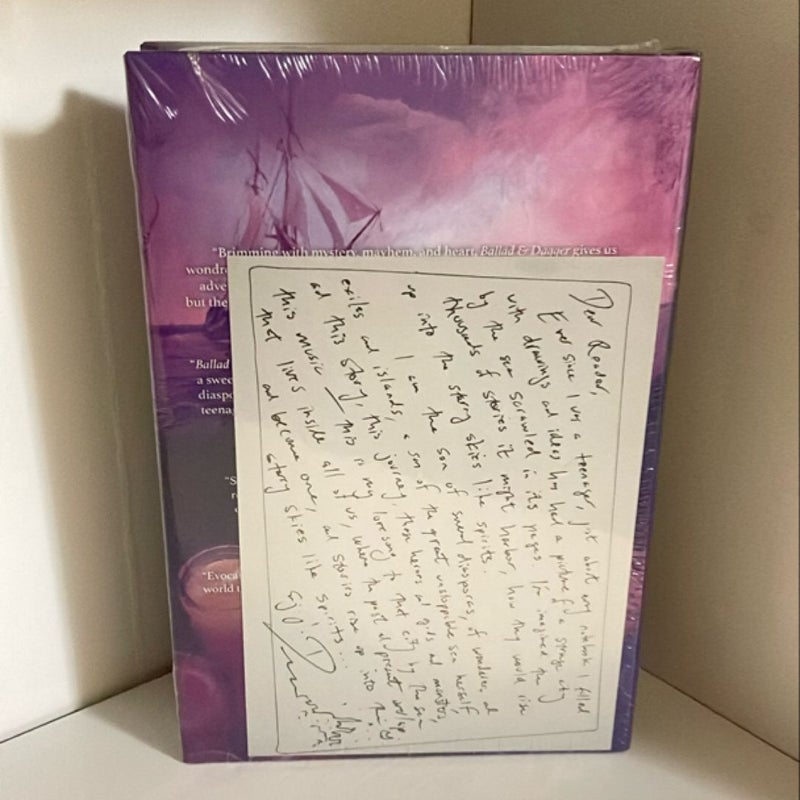 "Brimming with mystery, mayhem, and heart, Ballad & Dagger gives us
wondr
adve
but the
"Ballad
a swee
diaspo
teenag
"S
"Evoca
world t
Dear Reader,
Ever since I was a teenager, just about any notebook I filled
with drawings and ideas has had a picture of a strange city
by the sea scrawled in its pages. I've imagined the
thousands of stories it might harbor, how they would rise
up into the stormy skies like spirits.
I am the son of several diasporas, of wanderers and
exiles and islands, a son of the great unstoppable sea herself,
and this story, this journey, these heroes and gods and monsters,
this music — this is my lovesong to that city by the sea
that lives inside all of us, where the past and present
and become one, and stories rise up into the
stormy skies like spirits...